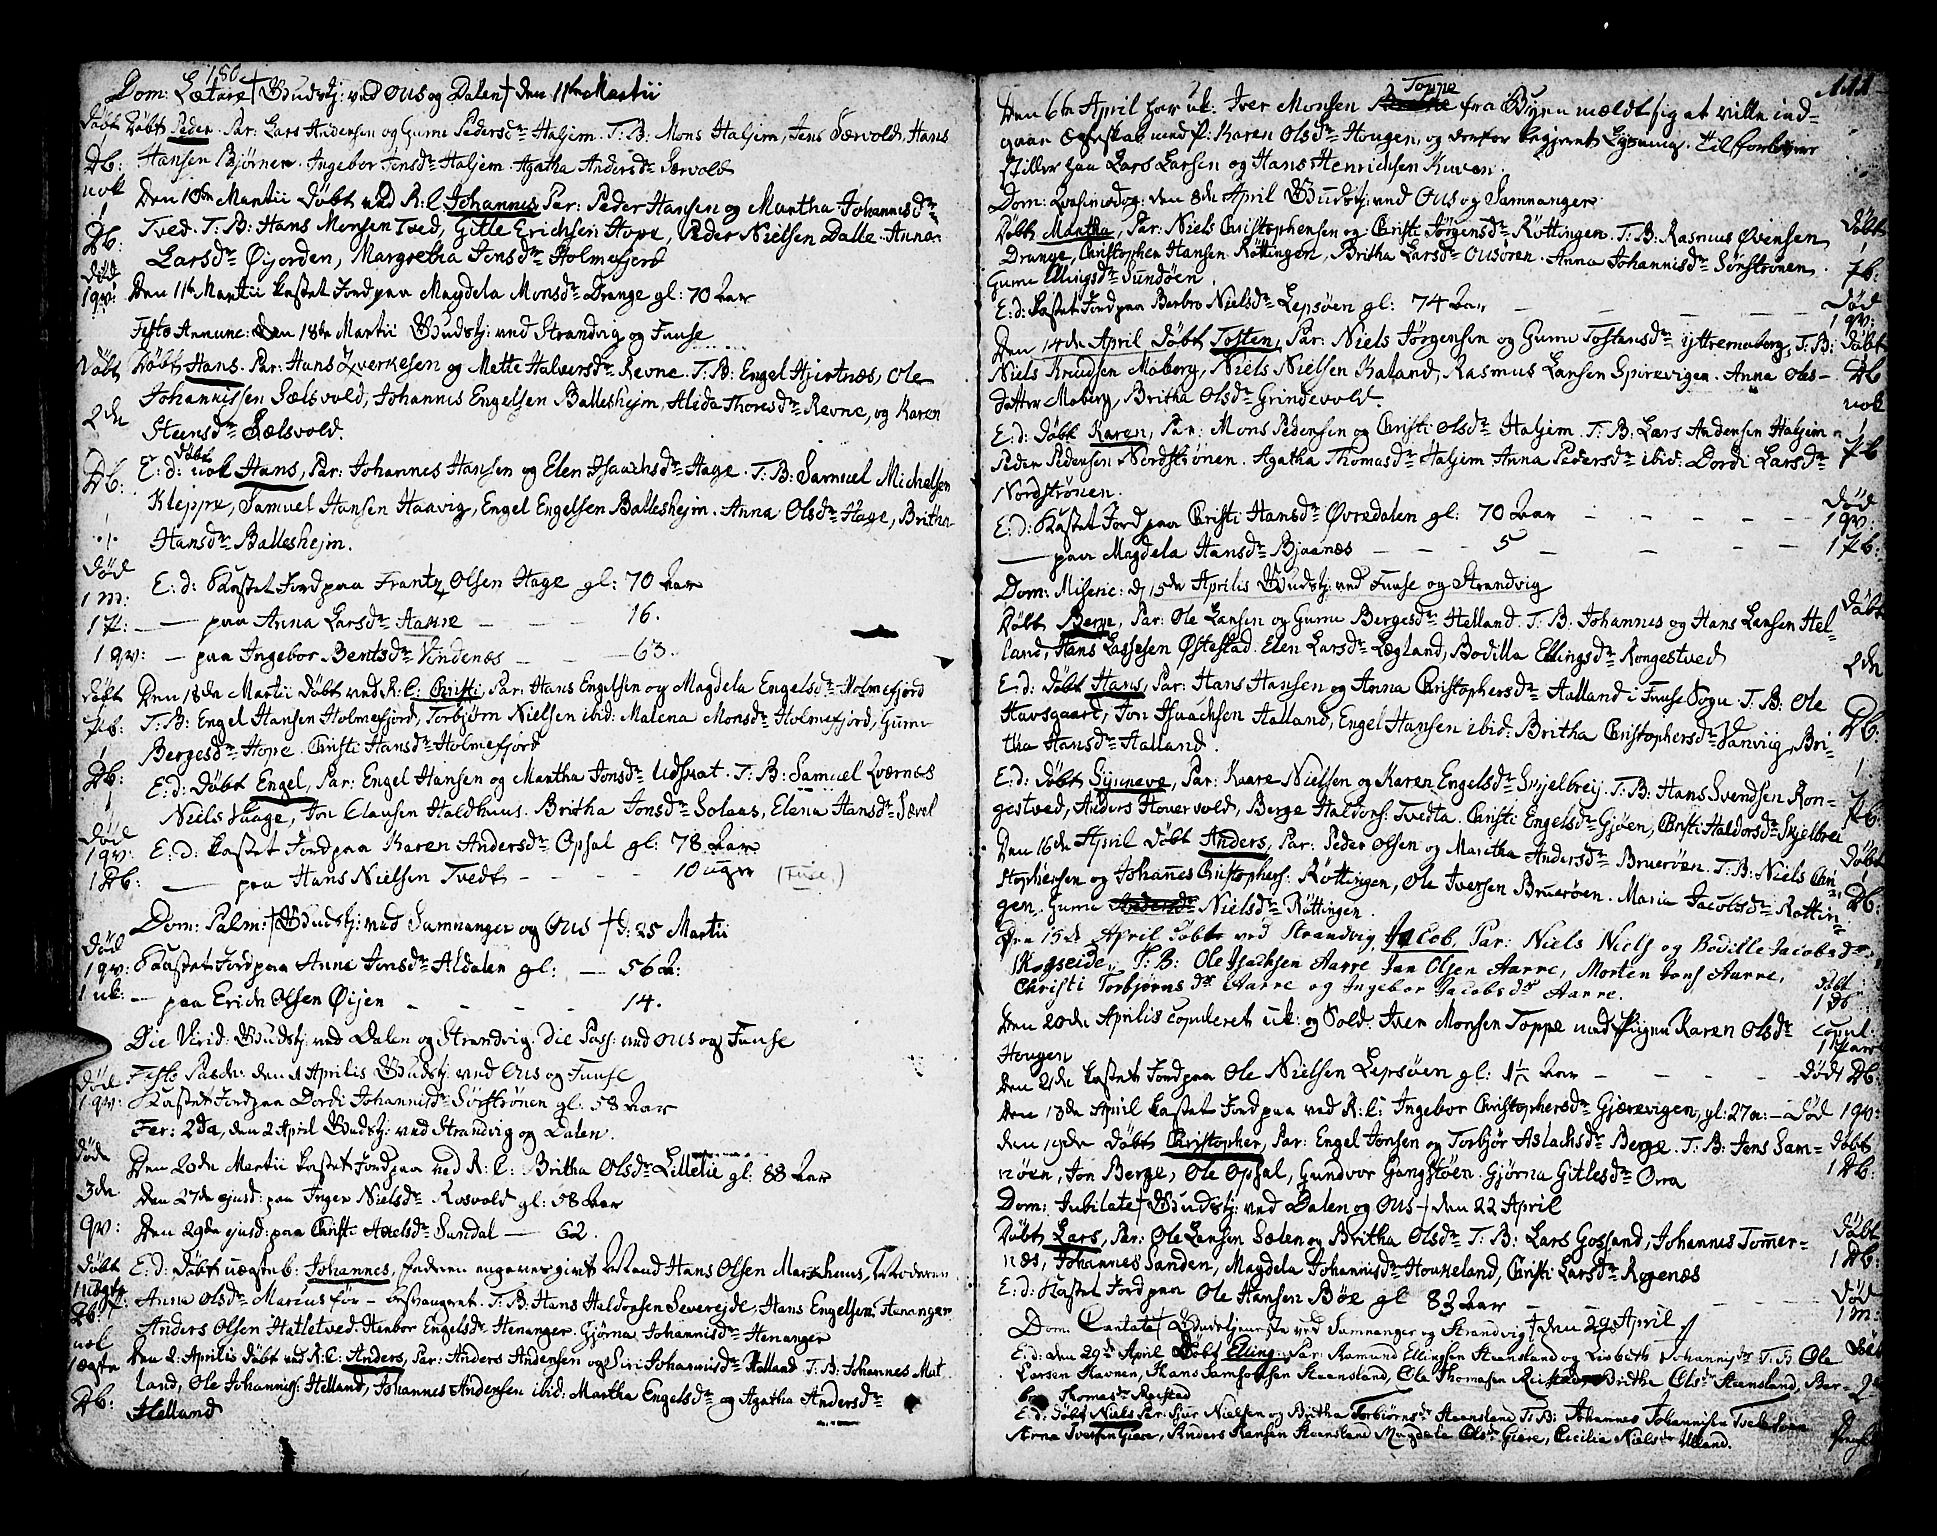 180.
Dom: Lætare † Gudstj: ved Ous og Dalen † den 11te Martii
Døbt Døbt Peder. Par: Lars Andersen og Gurne Pedersdr Haljem. T.B: Mons Haljem, Jens Særvold, Hans
Db: Hansen Bjørnen. Ingebor Jensdr Haljem. Agatha Andersdr Særvold
nok Den 10de Martii Døbt ved R:l Johannis Par: Peder Hansen og Martha Johannisdr
1 Tved. T.B: Hans Monsen Tved, Gitle Erichsen Hope, Peder Nielsen Dalle. Anna
Db: Larsdr Øijorden, Margretha Jensdr Holmefjord
død
1 qv: Den 11te Martii kastet Jord paa Magdela Monsdr Drange gl: 70 Aar
Festo Annunc: Den 18de Martii Gudstj: ved Strandvig og Fuuse
Døbt Døbt Hans. Par: Hans Zverkesen og Mette Halversdr Revne. T.B: Engel Hjertnæs, Ole
Johannissen Sælsvold, Johannis Engelsen Ballesheim, Alida Thoresdr Revne, og Karen
2de Steensdr Sælsvold.
E:d: døbt nok Hans, Par: Johannes Hansen og Elen Isaachsdr Hage. T.B: Samuel Michelsen
Db: Kleppe, Samuel Hansen Haavig, Engel Engelsen Ballesheim. Anna Olsdr Hage, Britha
1 Hansdr Ballesheim.
død
1 m: E:d: Kastet Jord paa Frantz Olsen Hage gl: 70 Aar
1 Pb: — — paa Anna Larsdr Haare — — 16.
1 qv: — paa Ingebor Bentsdr Vindenæs — — 63.
Døbt Den 18de Martii Døbt ved R:l: Christi, Par: Hans Engelsen og Magdela Engelsdr Holmefjord
Pb: T.B: Engel Hansen Holmefjord, Torbjørn Nielsen ibid: Malena Monsdr Holmefjord, Guru
1 Bergesdr Hope. Christi Hansdr Holmefjord
Db: E:d: Døbt Engel, Par: Engel Hansen og Martha Jonsdr Udsvat. T.B: Samuel Lværnes
1 Niels Haage, Jon Clausen Haldhuus. Britha Jonsdr Solaas, Elena Hansdr Sævel
død
1 qv: E:d: kastet Jord paa Karen Andersdr Opsal gl: 78 Aar
1 Db: — paa Hans Nielsen Tvedt — — 10 uger (Fuse.)
Dom: Palm: † Gudstj: ved Samnanger og Ous † d: 25 Martii
død
1 qv: Kastet Jord paa Anna Jonsdr Aldalen gl: — 56 A:
1 uk: — paa Erich Olsen Øijen — — 14.
Die Virid: Gudstj: ved Dalen og Strandvig. Die Pass: ved Ous og Fuuse
Festo Pasch: den 1 Aprilis Gudstj: ved Ous og Fuuse
død
1 qv: Kastet Jord paa Dordi Johannisdr Sørstrønen gl: 58 Aar
Fer: 2da, den 2 April Gudstj: ved Strandvig og Dalen.
døde Den 20de Martii kastet Jord paa ved R:l: Britha Olsdr Lilletie gl: 88 Aar
3de Den 27de ejusd: paa Inger Nielsdr Rosvold gl: 58 Aar
qv: Den 29de ejusd: paa Christi Axelsdr Sundal — 62.
Døbt E:d: Døbt uægte b: Johannes, faderen angaves givt Mand Hans Olsen Markhuus, Moderen
1 uægte Anna Olsdr Marcus før — besvangret. T.B: Hans Haldorsen Severejde, Hans Engelsen Henanger
Db: Anders Olsen Hatletved. Henbor Engelsdr Henanger. Gjørna Johannisdr Henanger
1 ægte Den 2: Aprilis døbt ved R:l: Anders, Par: Anders Andersen og Siri Johannisdr Helland T.B: Johannes Mæl
land, Ole Johanniss: Helland, Johannes Andersen ibid: Martha Engelsdr og Agatha Andersdr
Db: Helland
111
Den 6te April har uk: Iver Monsen Toppe fra Byen mældt sig at ville ind-
gaae Ægteskab med P: Karen Olsdr Hougen, og derfor begjeret Lysning. Til forlovere
stiller han Lars Larsen og Hans Henrichsen Kuven.
Dom: Qvasimodog: den 8de April Gudstj: ved Ous og Samnanger
Døbt Martha, Par: Niels Christophersen og Christi Jørgensdr Røttingen. T.B: Rasmus Øvensen Døbt
Drange, Christopher Hansen Røttingen, Britha Larsdr Ousøren. Anna Johannisdr Sørstrønen 1
Gurne Ellingsdr Sundøen. Pb:
E:d: kastet Jord paa Barbro Nielsdr Lepsøen gl: 74 Aar — — død 1 qv:
Den 14de April Døbt Tosten, Par: Niels Jørgensen og Gurne Tostensdr yttremoberg, T.B: Døbt
Niels Knudsen Moberg, Niels Nielsen Kaland, Rasmus Larsen Spirevigen. Anna Ols- Db
datter Moberg, Britha Olsdr Grindevold. nok
E:d: Døbt Karen, Par: Mons Pedersen og Christi Olsdr Haljem T.B: Lars Andersen Haljem 1
Peder Pedersen Nordstrønen. Agatha Thomasdr Haljem Anna Pedersdr ibid: Dordi Larsdr Pb
Nordstrønen.
E:d: Kastet Jord paa Christi Hansdr Øvredalen gl: 70 Aar — — død 1 qv:
— paa Magdela Hansdr Bjaanæs — — 5 — — 1 Pb:
Dom: Miseric: d: 15de Aprilis Gudstj: ved Fuuse og Strandvig
Døbt Berge, Par: Ole Larsen og Gurne Bergesdr Helland. T.B: Johannes og Hans Larsen Hel- Døbt
land, Hans Lassesen Østestad. Elen Larsdr Lægland, Bodilla Ellingsdr Rongestved
E:d: Døbt Hans, Par: Hans Hansen og Anna Christophersdr Halland i Fuuse Sogn T.B: Ole 2de
Havsgaard, Jon Isaachsen Halland, Engel Hansen ibid: Britha Christophersdr Vanvig, Bri- Db:
tha Hansdr Halland.
E:d: Døbt Synneve, Par: Kaare Nielsen og Karen Engelsdr Skjelbreij. T.B: Hans Svendsen Ron- 1
gestved, Anders Hovervold, Berge Haldors: Tvedta. Christi Engelsdr Gjøen, Christi Haldorsdr Skjelbrei Pb:
Den 16de April Døbt Anders, Par: Peder Olsen og Maritha Andersdr Bruerøen. T.B: Niels Chri Døbt
stophersen og Johannes Christophers: Røttingen, Ole Iversen Bruerøen. Maria Jacobsdr Røttin- 1
gen. Gurne Nielsdr Røttingen. Db:
Den 15de April Døbt ved Strandvig Jacob. Par: Niels Niels og Bodille Jacobsdr
Skogseide. T:B: Ole Isachsen Aarre Jan Olsen Aarre, Morten Jons Aarre,
Christi Torbjørnsdr Aarre og Ingebor Jacobsdr Aarre. Døbt 1 Db
Den 20de Aprilis copuleret uk: og Sold. Iver Monsen Toppe med Pigen Karen Olsdr Copul:
Hougen 1 Par
Den 21de kastet Jord paa Ole Nielsen Lepsøen gl: 1½ Aar — — død 1 Db:
Den 13de April kastet Jord paa ved R:l: Ingebor Christophersdr Gjærevigen, gl: 27 a: — Død 1 qv:
den 19de Døbt Christopher, Par: Engel Jonsen og Torbjør Aslachsdr Berge. T.B: Jens Sam- Døbt
nøen, Jon Berge, Ole Opsal, Gundvor Gangstøen. Gjørna Gitlesdr Orra 1 Db:
Dom: Jubilate † Gudstj: ved Dalen og Ous † den 22 April
Døbt Lars, Par: Ole Larsen Sælen og Britha Olsdr T.B: Lars Gossand, Johannis Tømmer- Døbt
næs, Johannes Sanden, Magdela Johannisdr Houkeland, Christi Larsdr Røgenæs 1 Db:
E:d: Kastet Jord paa Ole Hansen Bøe gl 83 Aar — — Død 1 m:
Dom: Cantate † Gudstjeneste ved Samnanger og Strandvig † den 29 April
E:d: den 29de April Døbt Elling, Par: Ramund Ellingsen Steensland og Lisbeth Johannisdr T.B Ole Døbt
Larsen Havnen, Hans Samsonsen Steensland, Ole Thomasen Reistad, Brithe Olsdr Steensland, Bar- 2de
bro Thomasdr Reistad
E:d: døbt Niels Par: Siur Nielsen og Britha Torbiørnsdr Steensland T:B: Johannes Johannisen Tvelesven
Arna Iversen Giøre, Anders Hansen Steensland Magdele Olsdr Giøre, Cecilia Nielsdr Ulland.